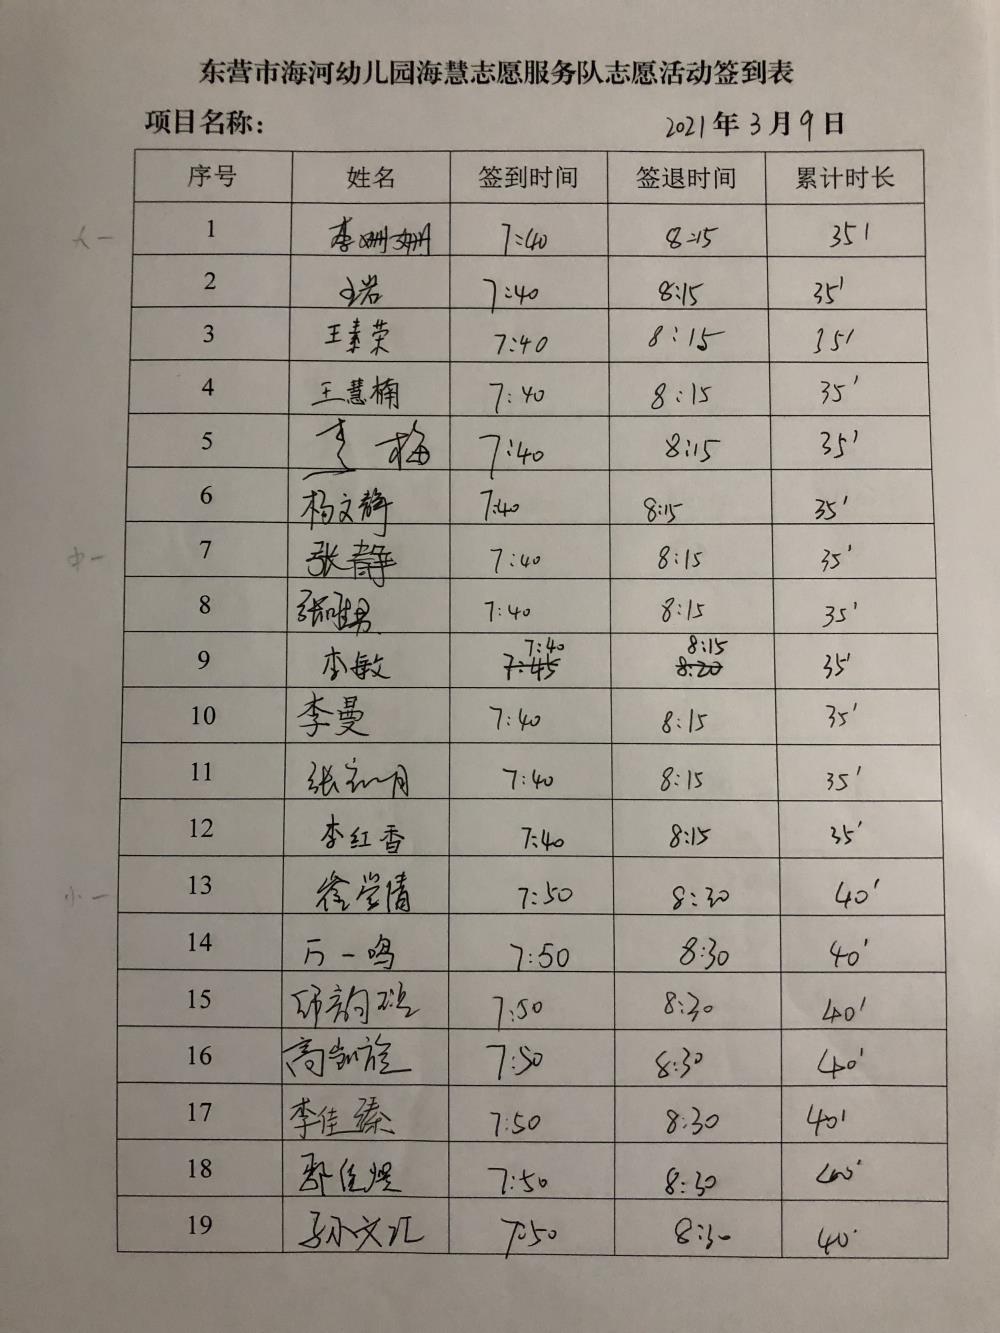 东营市海河幼儿园海慧志愿服务队志愿活动签到表
项目名称： 2021年3月9日
序号 姓名 签到时间 签退时间 累计时长
大一 1 李姗姗 7:40 8:15 35'
2 王岩 7:40 8:15 35'
3 王素荣 7:40 8:15 35'
4 王慧楠 7:40 8:15 35'
5 梅 7:40 8:15 35'
6 杨文静 7:40 8:15 35'
中一 7 张静 7:40 8:15 35'
8 张唯男 7:40 8:15 35'
7:40 8:15
9 李敏 7:45 8:20 35'
10 李曼 7:40 8:15 35'
11 张初月 7:40 8:15 35'
12 李红香 7:40 8:15 35'
小一 13 徐学倩 7:50 8:30 40'
14 万一鸣 7:50 8:30 40'
15 7:50 8:30 40'
16 高凯旋 7:50 8:30 40'
17 李佳臻 7:50 8:30 40'
18 鄢佳煜 7:50 8:30 40'
19 孙文汇 7:50 8:30 40'